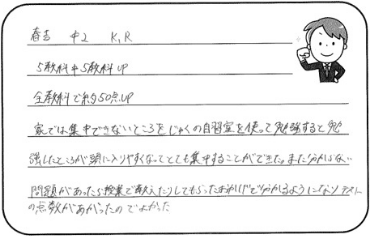 春吉 中2 K,R
5教科中5教科UP
全教科で約50点UP
家では集中できないところをじゅくの自習室を使って勉強すると勉
強したところが頭に入りやすくなってとても集中することができた。また分からない
問題があったら授業で教えたりしてもらったおかげで分かるようになりテスト
の点数があがったのでよかった